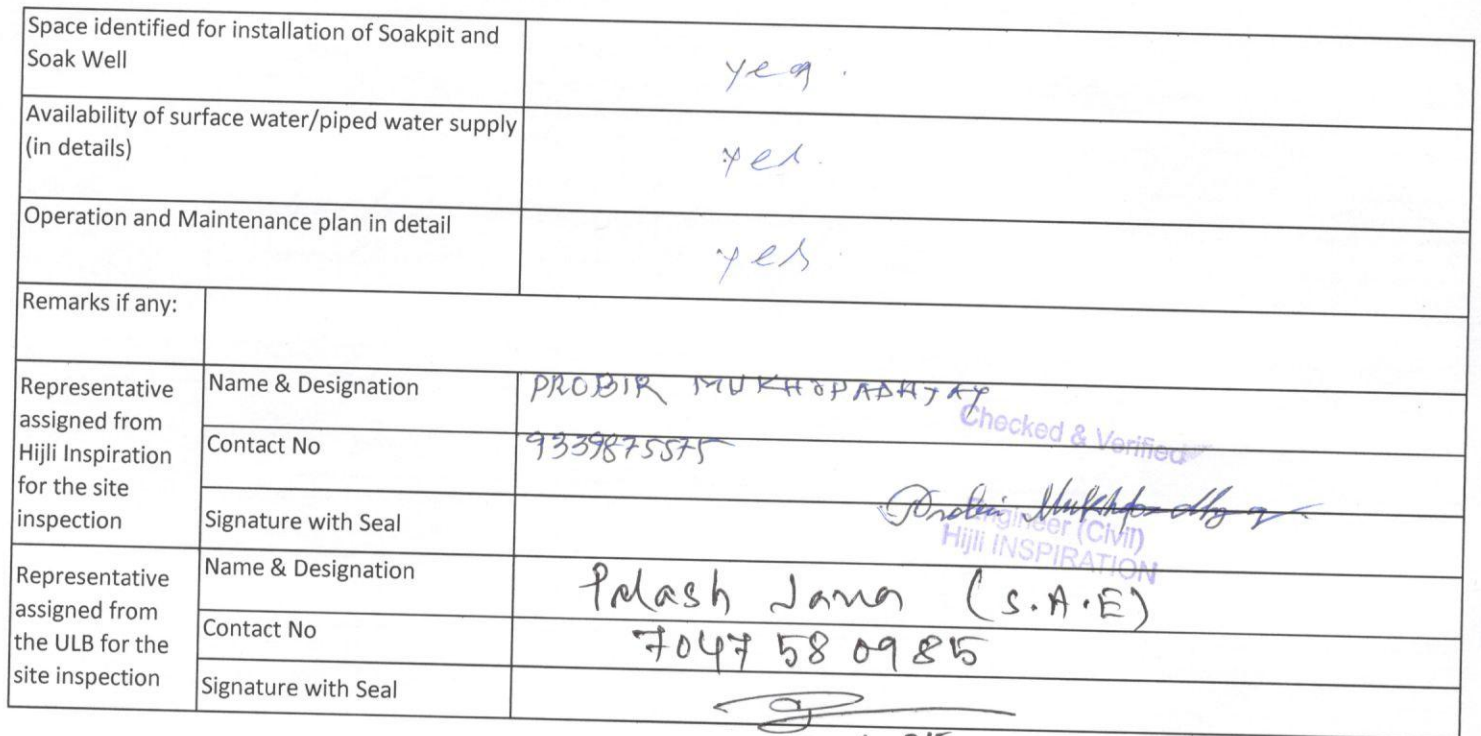 Space identified for installation of Soakpit and
Soak Well
yes.
Availability of surface water/piped water supply
(in details)
yes.
Operation and Maintenance plan in detail
yes.
Remarks if any:
Representative
assigned from
Hijli Inspiration
for the site
inspection
Name & Designation
PROBIR MUKHOPADHYAY
Checked & Verified
Contact No
9339875575
Signature with Seal
Engineer (Civil)
Hijli INSPIRATION
Representative
assigned from
the ULB for the
site inspection
Name & Designation
Palash Jana (S.A.E)
Contact No
7047 58 0985
Signature with Seal